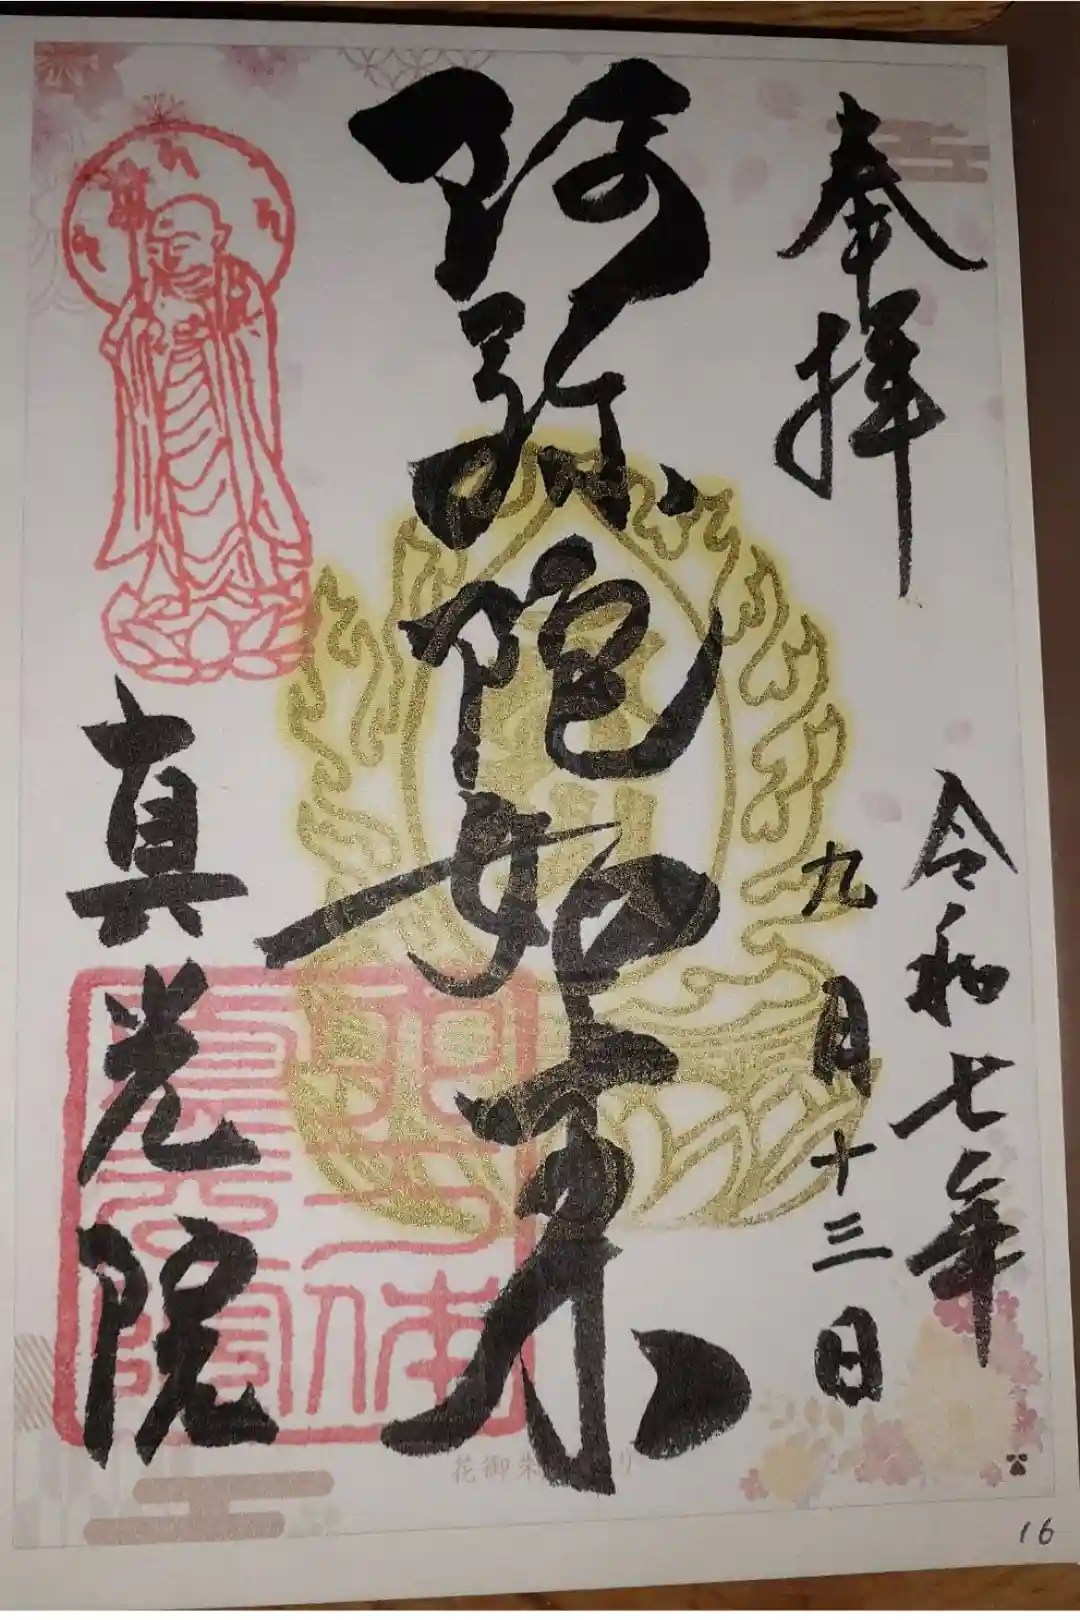 奉拝
令和七年
九月十三日
阿弥陀如来
真光院
花御朱
り
16